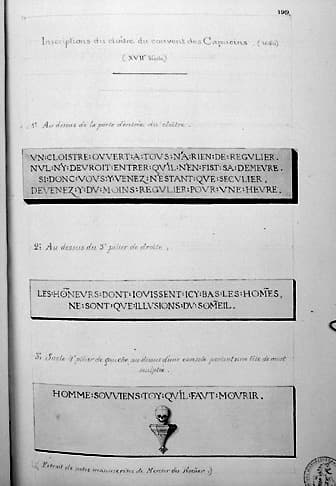 199
Inscriptions du cloître du couvent des Capucins. (1680)
(XVIIe Siècle)
1º Au dessus de la porte d'entrée du cloître.
VN:CLOISTRE:OVVERT:A:TOVS:N'A:RIEN:DE:REGVLIER.
NVL:N'Y:DEVROIT:ENTRER:QV'IL:N'EN:FIST:SA:DEMEVRE.
SI:DONC:VOVS:Y:VENEZ:N'ESTANT:QVE:SECVLIER,
DEVENEZ:Y:DV:MOINS:REGVLIER:POVR:VNE:HEVRE.
2º Au dessus du 3e pilier de droite.
LES:HÕNEVRS:DONT:IOVISSENT:ICY:BAS:LES:HOM̃ES,
NE:SONT:QVE:ILLVSIONS:DV:SOM̃EIL.
3º Sur le pilier de gauche au dessus d'une console portant une tête de mort
sculptée.
HOMME:SOVVIENS:TOY:QV'IL:FAVT:MOVRIR.
Extrait de notes manuscrites de Mercier du Rocher.)